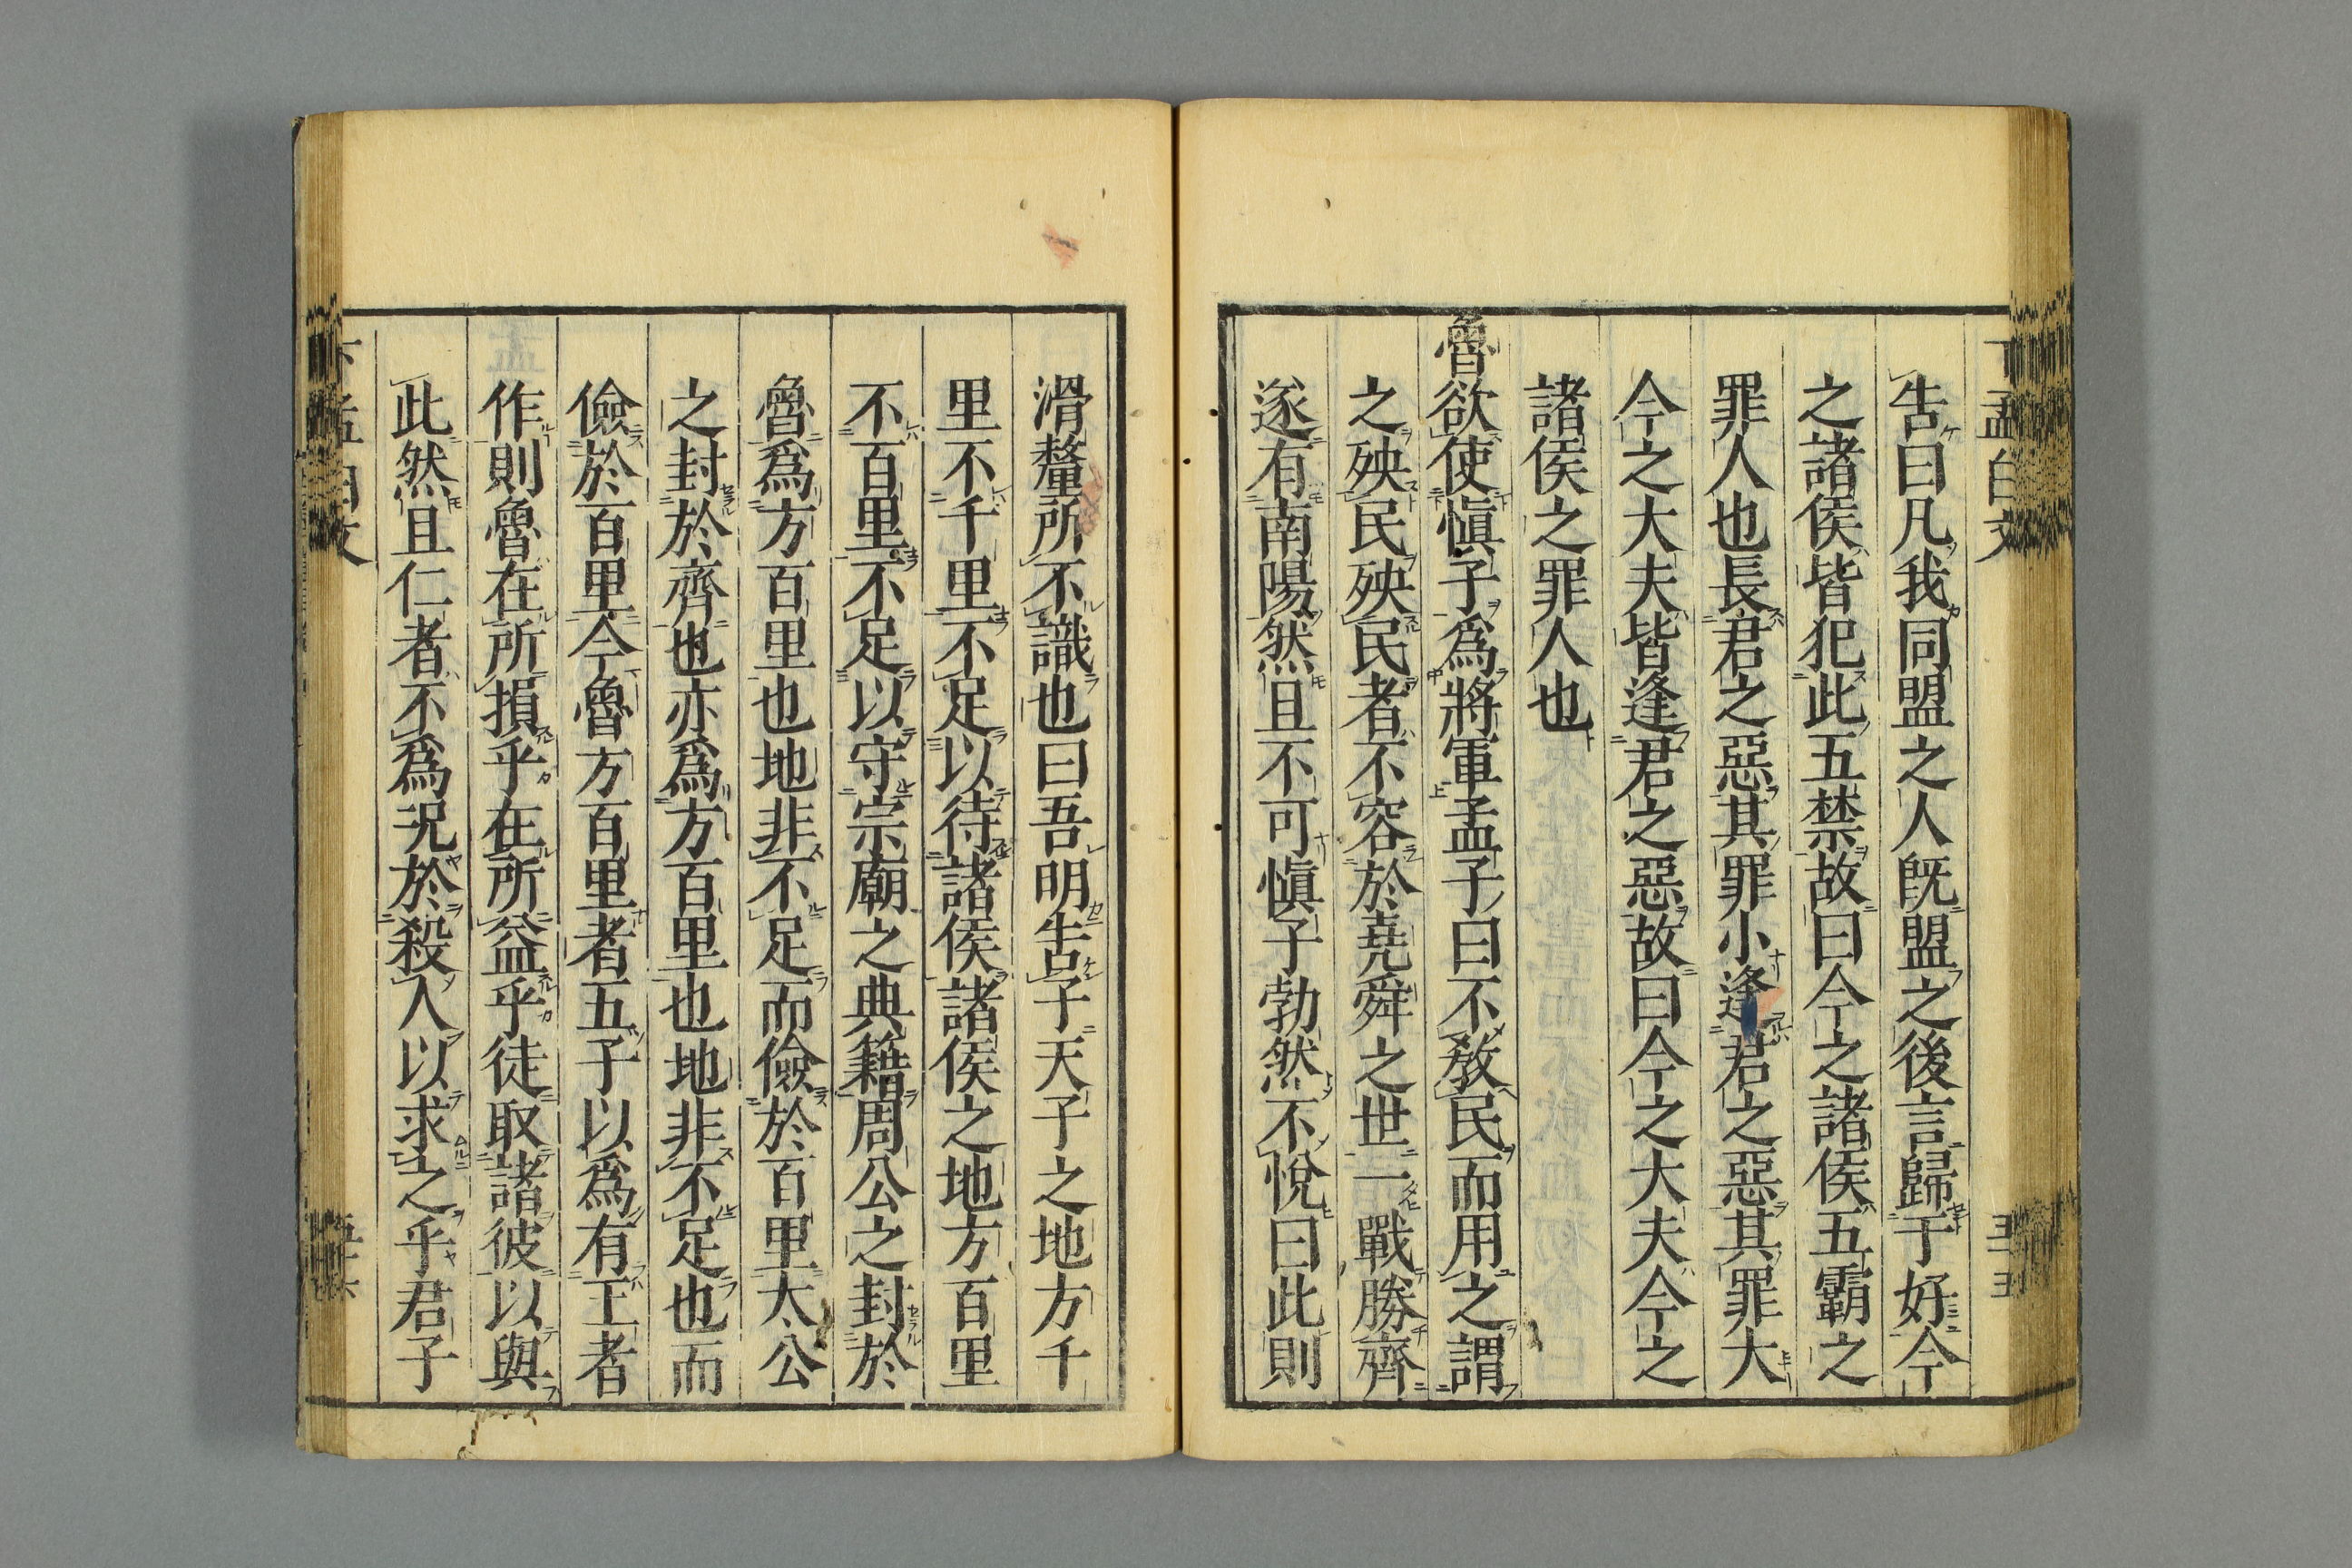 告曰凡我同盟之人既盟之後言歸于好今
之諸侯皆犯此五禁故曰今之諸侯五霸之
罪人也長君之惡其罪小逢君之惡其罪大
今之大夫皆逢君之惡故曰今之大夫今之
諸侯之罪人也
魯欲使愼子爲將軍孟子曰不敎民而用之謂
之殃民殃民者不容於堯舜之世一戰勝齊
遂有南陽然且不可愼子勃然不悅曰此則
滑釐所不識也曰吾明告子天子之地方千
里不千里不足以待諸侯諸侯之地方百里
不百里不足以守宗廟之典籍周公之封於
魯爲方百里也地非不足而儉於百里太公
之封於齊也亦爲方百里也地非不足也而
儉於百里今魯方百里者五子以爲有王者
作則魯在所損乎在所益乎徒取諸彼以與
此然且仁者不爲況於殺人以求之乎君子